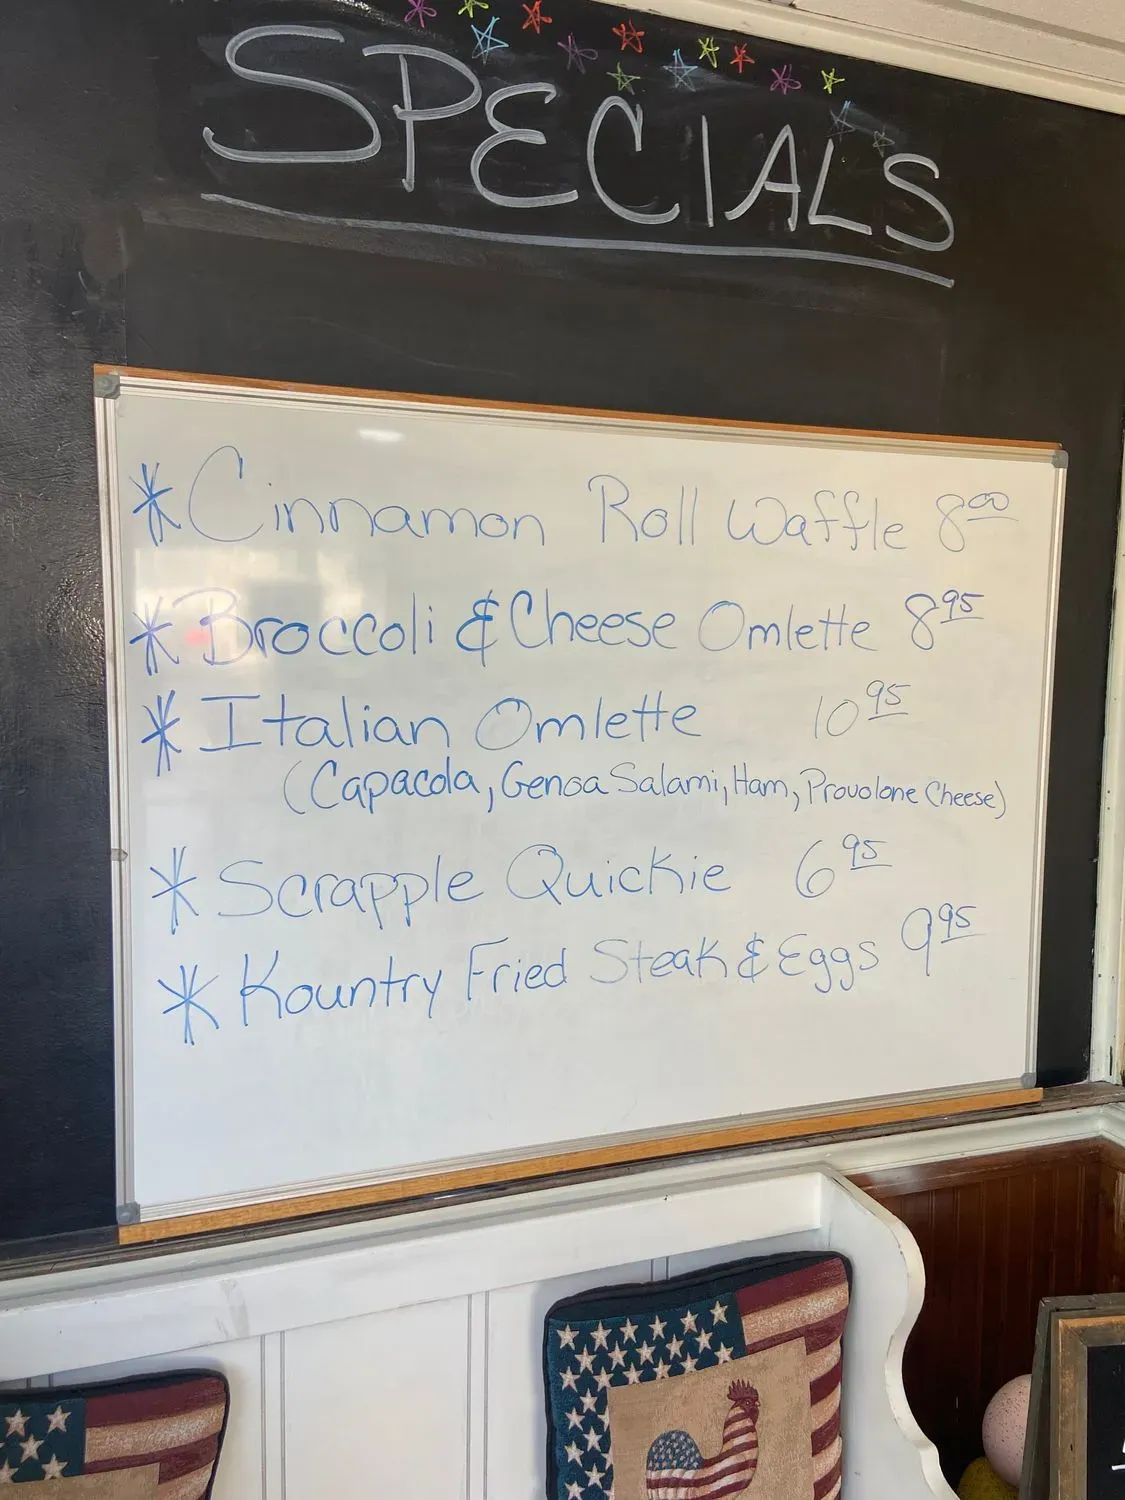 SPECIALS
* Cinnamon Roll Waffle 8.00
* Broccoli & Cheese Omlette 8.95
* Italian Omlette 10.95
(Capacola, Genoa Salami, Ham, Provolone Cheese)
* Scrapple Quickie 6.95
* Kountry Fried Steak & Eggs 9.95